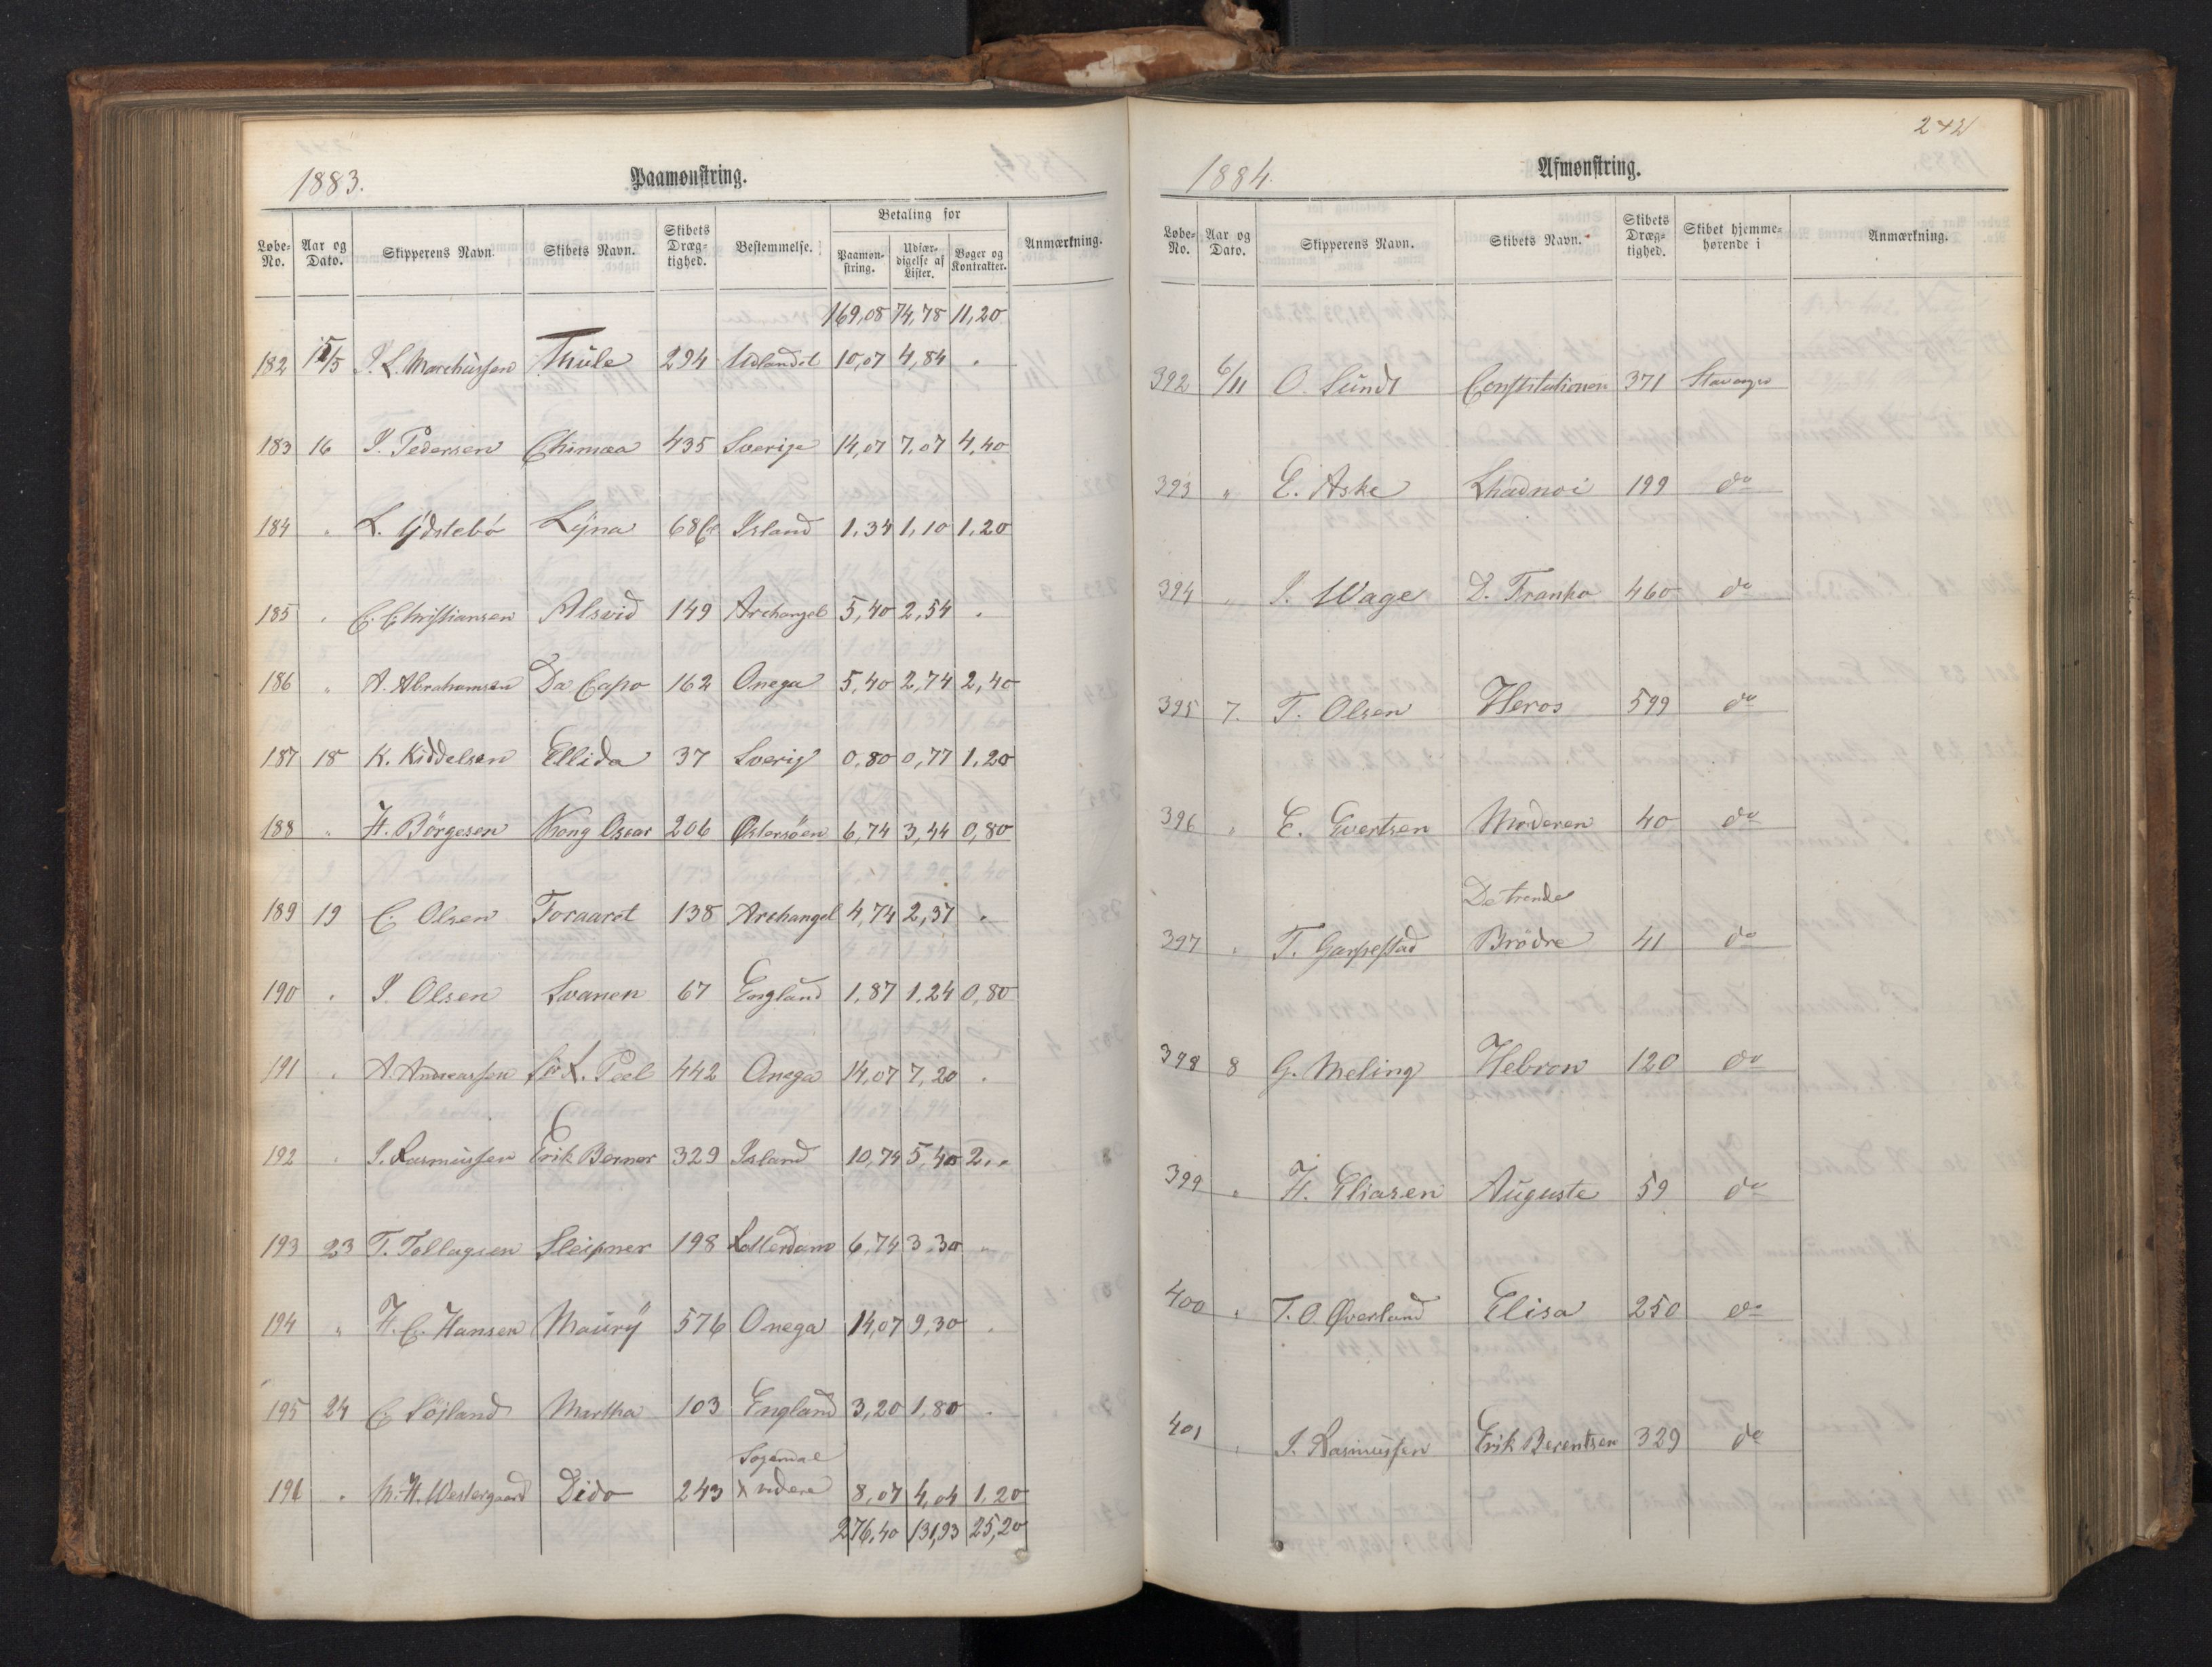 1883.
Paamonstring.
Løbe-No. Aar og Dato. Skipperens Navn Skibets Navn. Skibets Dræg-tighed. Bestemmelse. Betaling for Paamon-string. Udfær-digelse af Lister. Bøger og Kontrakter. Anmærkning.
169,08 74,78 11,20
182 15/5 Thule 294 Udlandet 10,07 4,84 .
183 16 I. Pedersen Chimæa 435 Sverige 14,07 7,07 4,40
184 " L. Ydstebö Lÿna 68 Island 1,34 1,10 1,20
185 . C. Christiansen Alsvid 149 Archangel 5,40 2,54 .
186 " A. Abrahamsen Da Capo 162 Onega 5,40 2,74 2,40
187 18 K. Kiddelsen Ellida 37 Sverig 0,80 0,77 1,20
188 " H. Börgesen Kong Oscar 206 Østersöen 6,74 3,44 0,80
189 19 C. Olsen Foraaret 138 Archangel 4,74 2,37 .
190 . I. Olsen Svanen 67 England 1,87 1,24 0,80
191 . A. Andreassen Sir R. Peel 442 Onega 14,07 7,20 .
192 . I. Rasmussen Erik Berner 329 Island 10,74 5,40 2"
193 23 T. Tollagsen Sleipner 198 Rotterdam 6,74 3,30 "
194 " H. C. Hansen Maurÿ 576 Onega 14,07 9,30 .
195 24 C. Söjland Martha 103 England 3,20 1,80 .
Sogendal
196 . M. H. Westergaard Dido 243 x videre 8,07 4,04 1,20
276,40 131,93 25,20
242
1884.
Afmonstring.
Løbe-No. Aar og Dato. Skipperens Navn. Skibets Navn. Skibets Dræg-tighed. Skibet hjemme-hørende i Anmærkning.
392 6/11 O. Sundt Constitutionen 371 Stavanger
393 " E. Aske Lhadnoi 199 do
394 " I. Wage D. Franko 460 do
395 7. T. Olsen Heros 599 do
396 " E. Evertsen Moderen 40 do
De trende
397 . T. Garpestad Brödre 41 do
398 8 G. Meling Hebron 120 do
399 . H. Eliasen Auguste 59 do
400 . T. O. Øverland Elisa 250 do
401 . I. Rasmussen Erik Berentsen 329 do